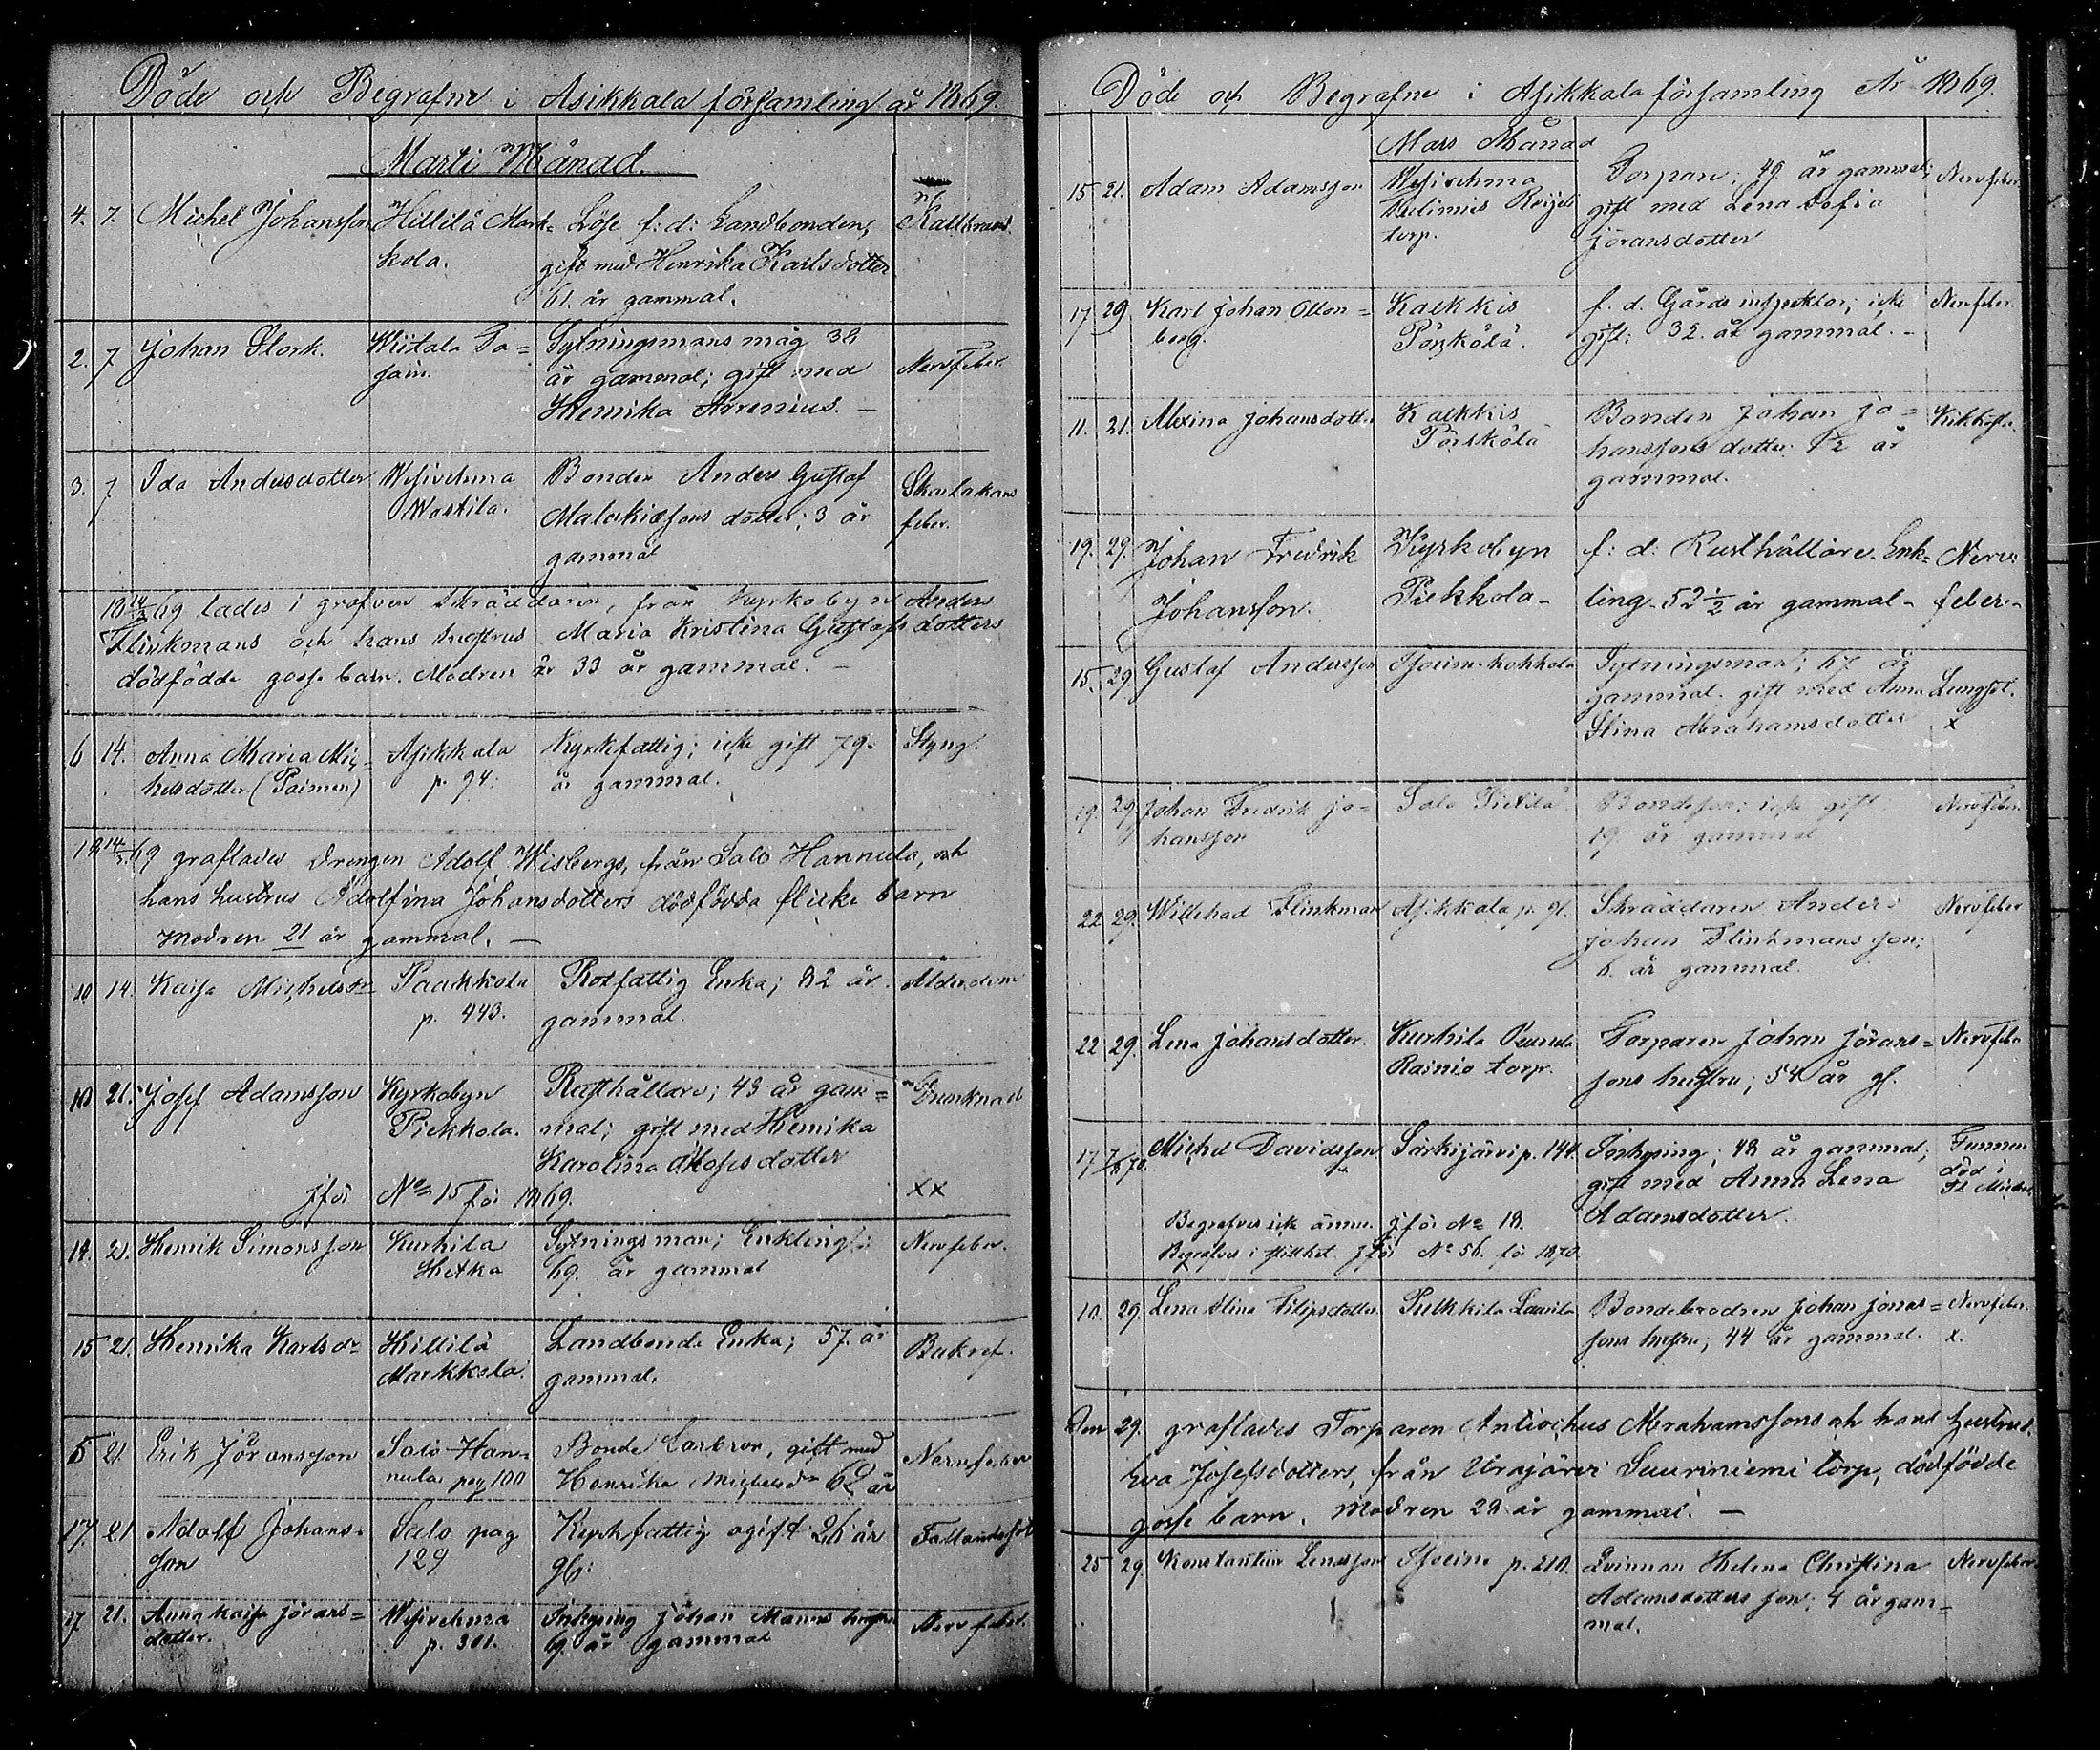 Döde och Begrafne i Asikkala församling år 1869.
Marti Månad.
4. 7. Michel Johansson Hillilä Mark= Löse f: d: Landbonden, Kallbrand
kola. gift med Henrika Karlsdotter
61. år gammal.
2. 7 Johan Stork. Wiitala Sytningsmans måg 38
år gammal; gift med Nervfeber.
Henrika Arrenius. —
3. 7 Ida Andersdotter Wesivehma Bonden Anders Gustaf Skarlakans
Wostila. dotter; 3 år feber.
gammal
18 14/3 69 lades i grafven Skräddaren, från Kyrkobyn Anders
Flinkmans och hans hustrus Maria Kristina Gustafsdotters
dödfödda gosse barn. Modren är 33 år gammal. —
6 14. Anna Maria Mic= Asikkala Kyrkfattig; icke gift 79. Styng.
helsdotter (Paimen) p. 94. år gammal.
18 14/3 69 graflades Drengen Adolf Wisbergs, från Salo Hannula, och
hans hustrus Adolfina Johansdotters dödfödda flicke barn
Modren 21 år gammal. —
10 14. Kaisa Michelsdr Paakkola Rotfattig Enka; 82 år Ålderdom
p. 443. gammal.
10 21. Josef Adamsson Kyrkobyn Rusthållare; 43 år gam= Drunknad
Piekkola. mal; gift med Henrika
Karolina Mosesdotter
jför No 15 för 1869. xx
14. 21. Henrik Simonsson Kurhila Sytningsman; Enkling; Nervfeber.
Hietka 69. år gammal
15 21. Henrika Karlsdr Hillilä Landbonde Enka; 57. år Bukref.
Markkola. gammal.
5 21. Erik Jöransson Salo Han= Bonde, gift med Nervfeber
nula pag 100 Henrika Michelsdr 62 år
17. 21 Adolf Johans= Salo pag Kyrkfattig ogift 26 år Fallandesot
son 129 gl:
17 21. Anna Kaisa Jörans= Wesivehma Inhysing Johan Manns hustru Nervfeber.
dotter. p. 301. 69. år gammal
Döde och Begrafne i Asikkala församling År 1869.
Mars Månad
15 21. Adam Adamsson Wesivehma Torpare; 49 år gammal; Nervfeber.
gift med Lena Sofia
torp. Jöransdotter
17 29 Karl Johan Olton= Kalkkis f. d. Gårds inspektor; icke Nervfeber.
berg. Pörskölä. gift: 32. år gammal. —
11. 21. Alexina Johansdotter Kalkkis Bonden Johan Jo= Kikhosta.
Pörskölä hanssons dotter 1½ år
gammal.
19. 29. Johan Fredrik Kyrkobyn f: d: Rusthållare Enk= Nerv
Johansson. Piekkola ling 52 ½ år gammal feber
15. 29 Gustaf Andersson Sytningsman; 67 år
gammal. gift med Anna Lungsot.
Stina Abrahamsdotter x
19. 29 Johan Fredrik Jo= Salo Bondeson; icke gift Nervfeber
hansson 19. år gammal
22 29. Willehad Flinkman Asikkala p. 91. Skräddaren Anders Nervfeber
Johan Flinkmans son;
6. år gammal.
22 29. Lena Johansdotter. Kurhila Torparen Johan Jörans= Nervfeber
Rainio torp. sons hustru; 54 år gl.
17 Michel Davidsson Särkijärvi p. 144. Inhysing; 48 år gammal; Funnen
gift med Anna Lena död i
Begrafves icke ännu. Jför No 18. Adamsdotter. St Michel
Begrafves i stillhet Jför No 56. för 1870.
10. 29. Lena Stina Filipsdotter. Pulkkila Laurila Bondebrodren Johan Jonas= Nervfeber.
sons hustru; 44 år gammal. x.
Den 29. graflades Torparen Antiochus Abrahamssons och hans hustrus
Eva Josefsdotters, från Urajärvi Suuriniemi torp, dödfödde
gosse barn. Modren 28 år gammal. —
25 29 Konstantin Lenasson p. 210. Qvinnan Helena Christina Nervfeber
Adamsdotters son; 4 år gam=
mal.